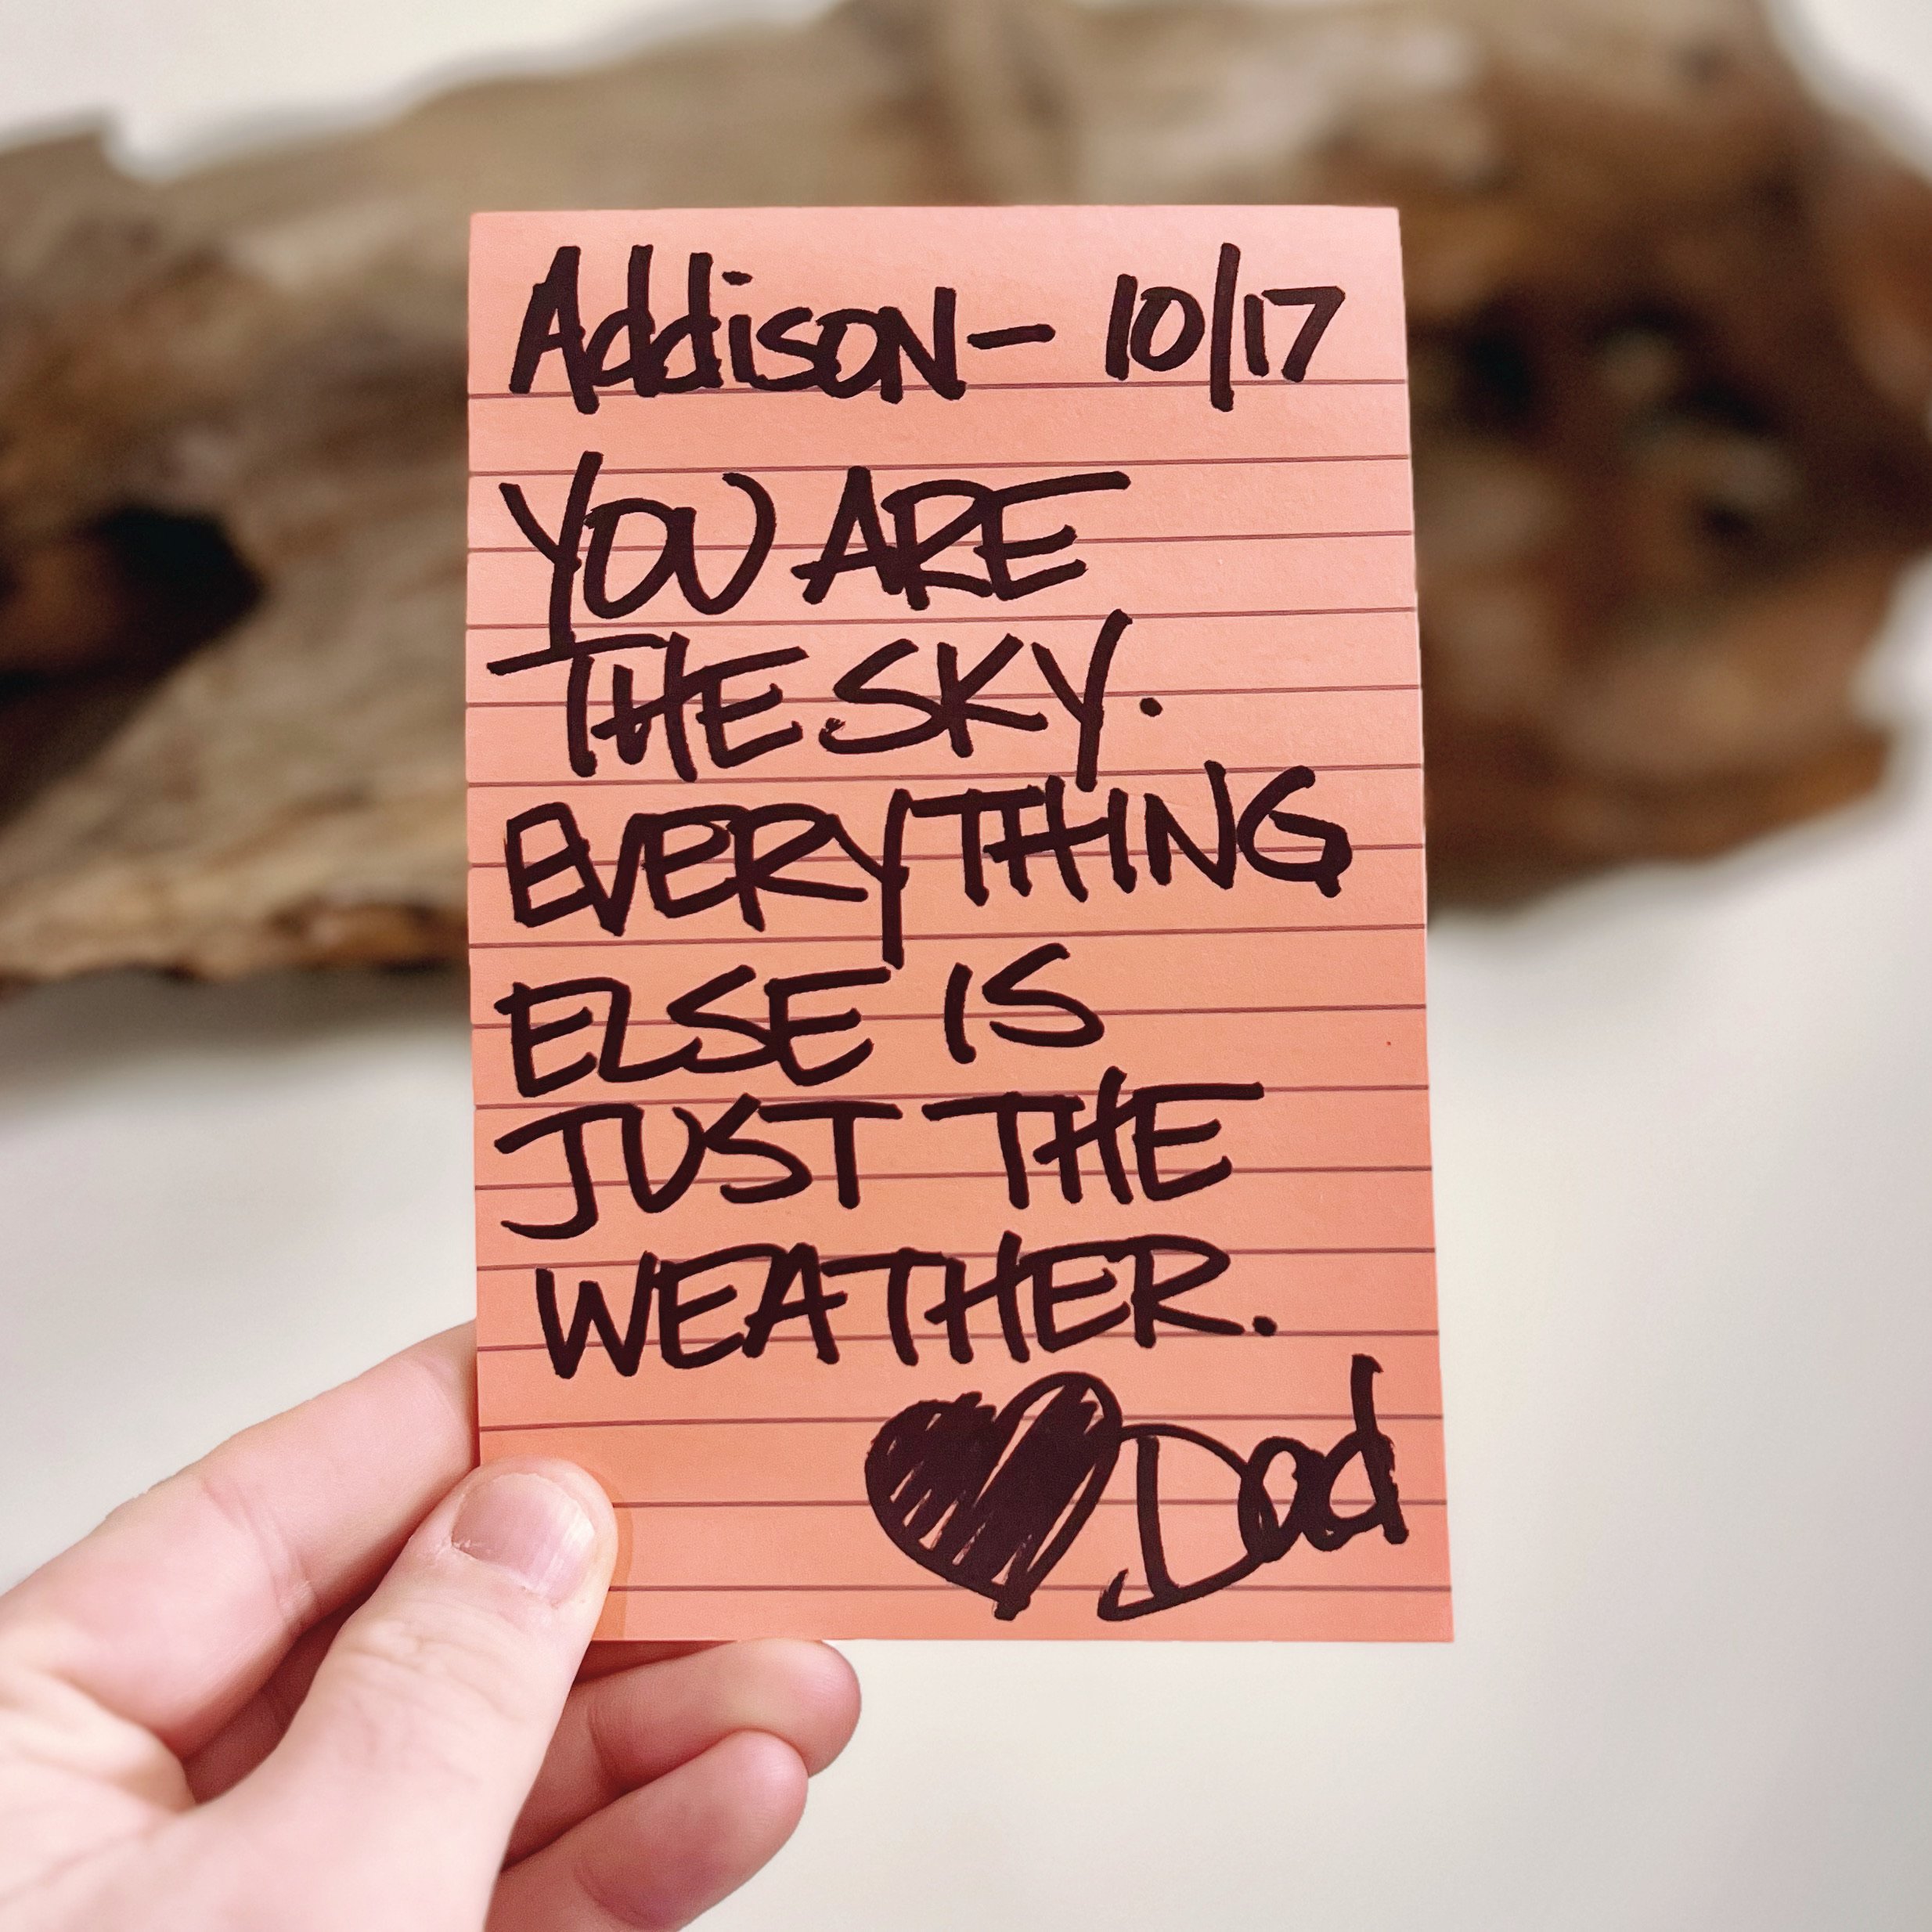 Addison- 10/17
YOU ARE
THE SKY.
EVERYTHING
ELSE IS
JUST THE
WEATHER.
Dad